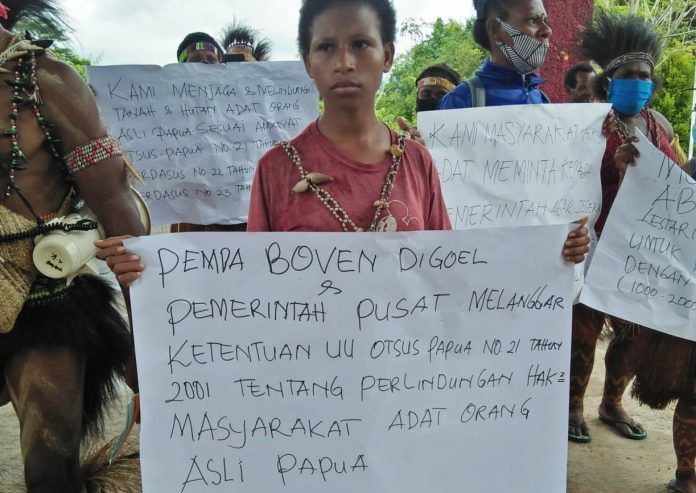 KAMI MENJAGA & MELINDUNGI
TANAH & HUTAN ADAT ORANG
ASLI PAPUA SESUAI AMANAT
OTSUS PAPUA NO. 21 TAHUN
PERDASUS NO. 22 TAHUN
PERDASUS NO. 23 TAHUN
KAMI MASYARAKAT
ADAT MEMINTA KEPADA
PEMERINTAH AGAR SEGERA
LESTARI
UNTUK
DENGAN
(1000-2000
PEMDA BOVEN DIGOEL
&
PEMERINTAH PUSAT MELANGGAR
KETENTUAN UU OTSUS PAPUA NO. 21 TAHUN
2001 TENTANG PERLINDUNGAN HAK2
MASYARAKAT ADAT ORANG
ASLI PAPUA